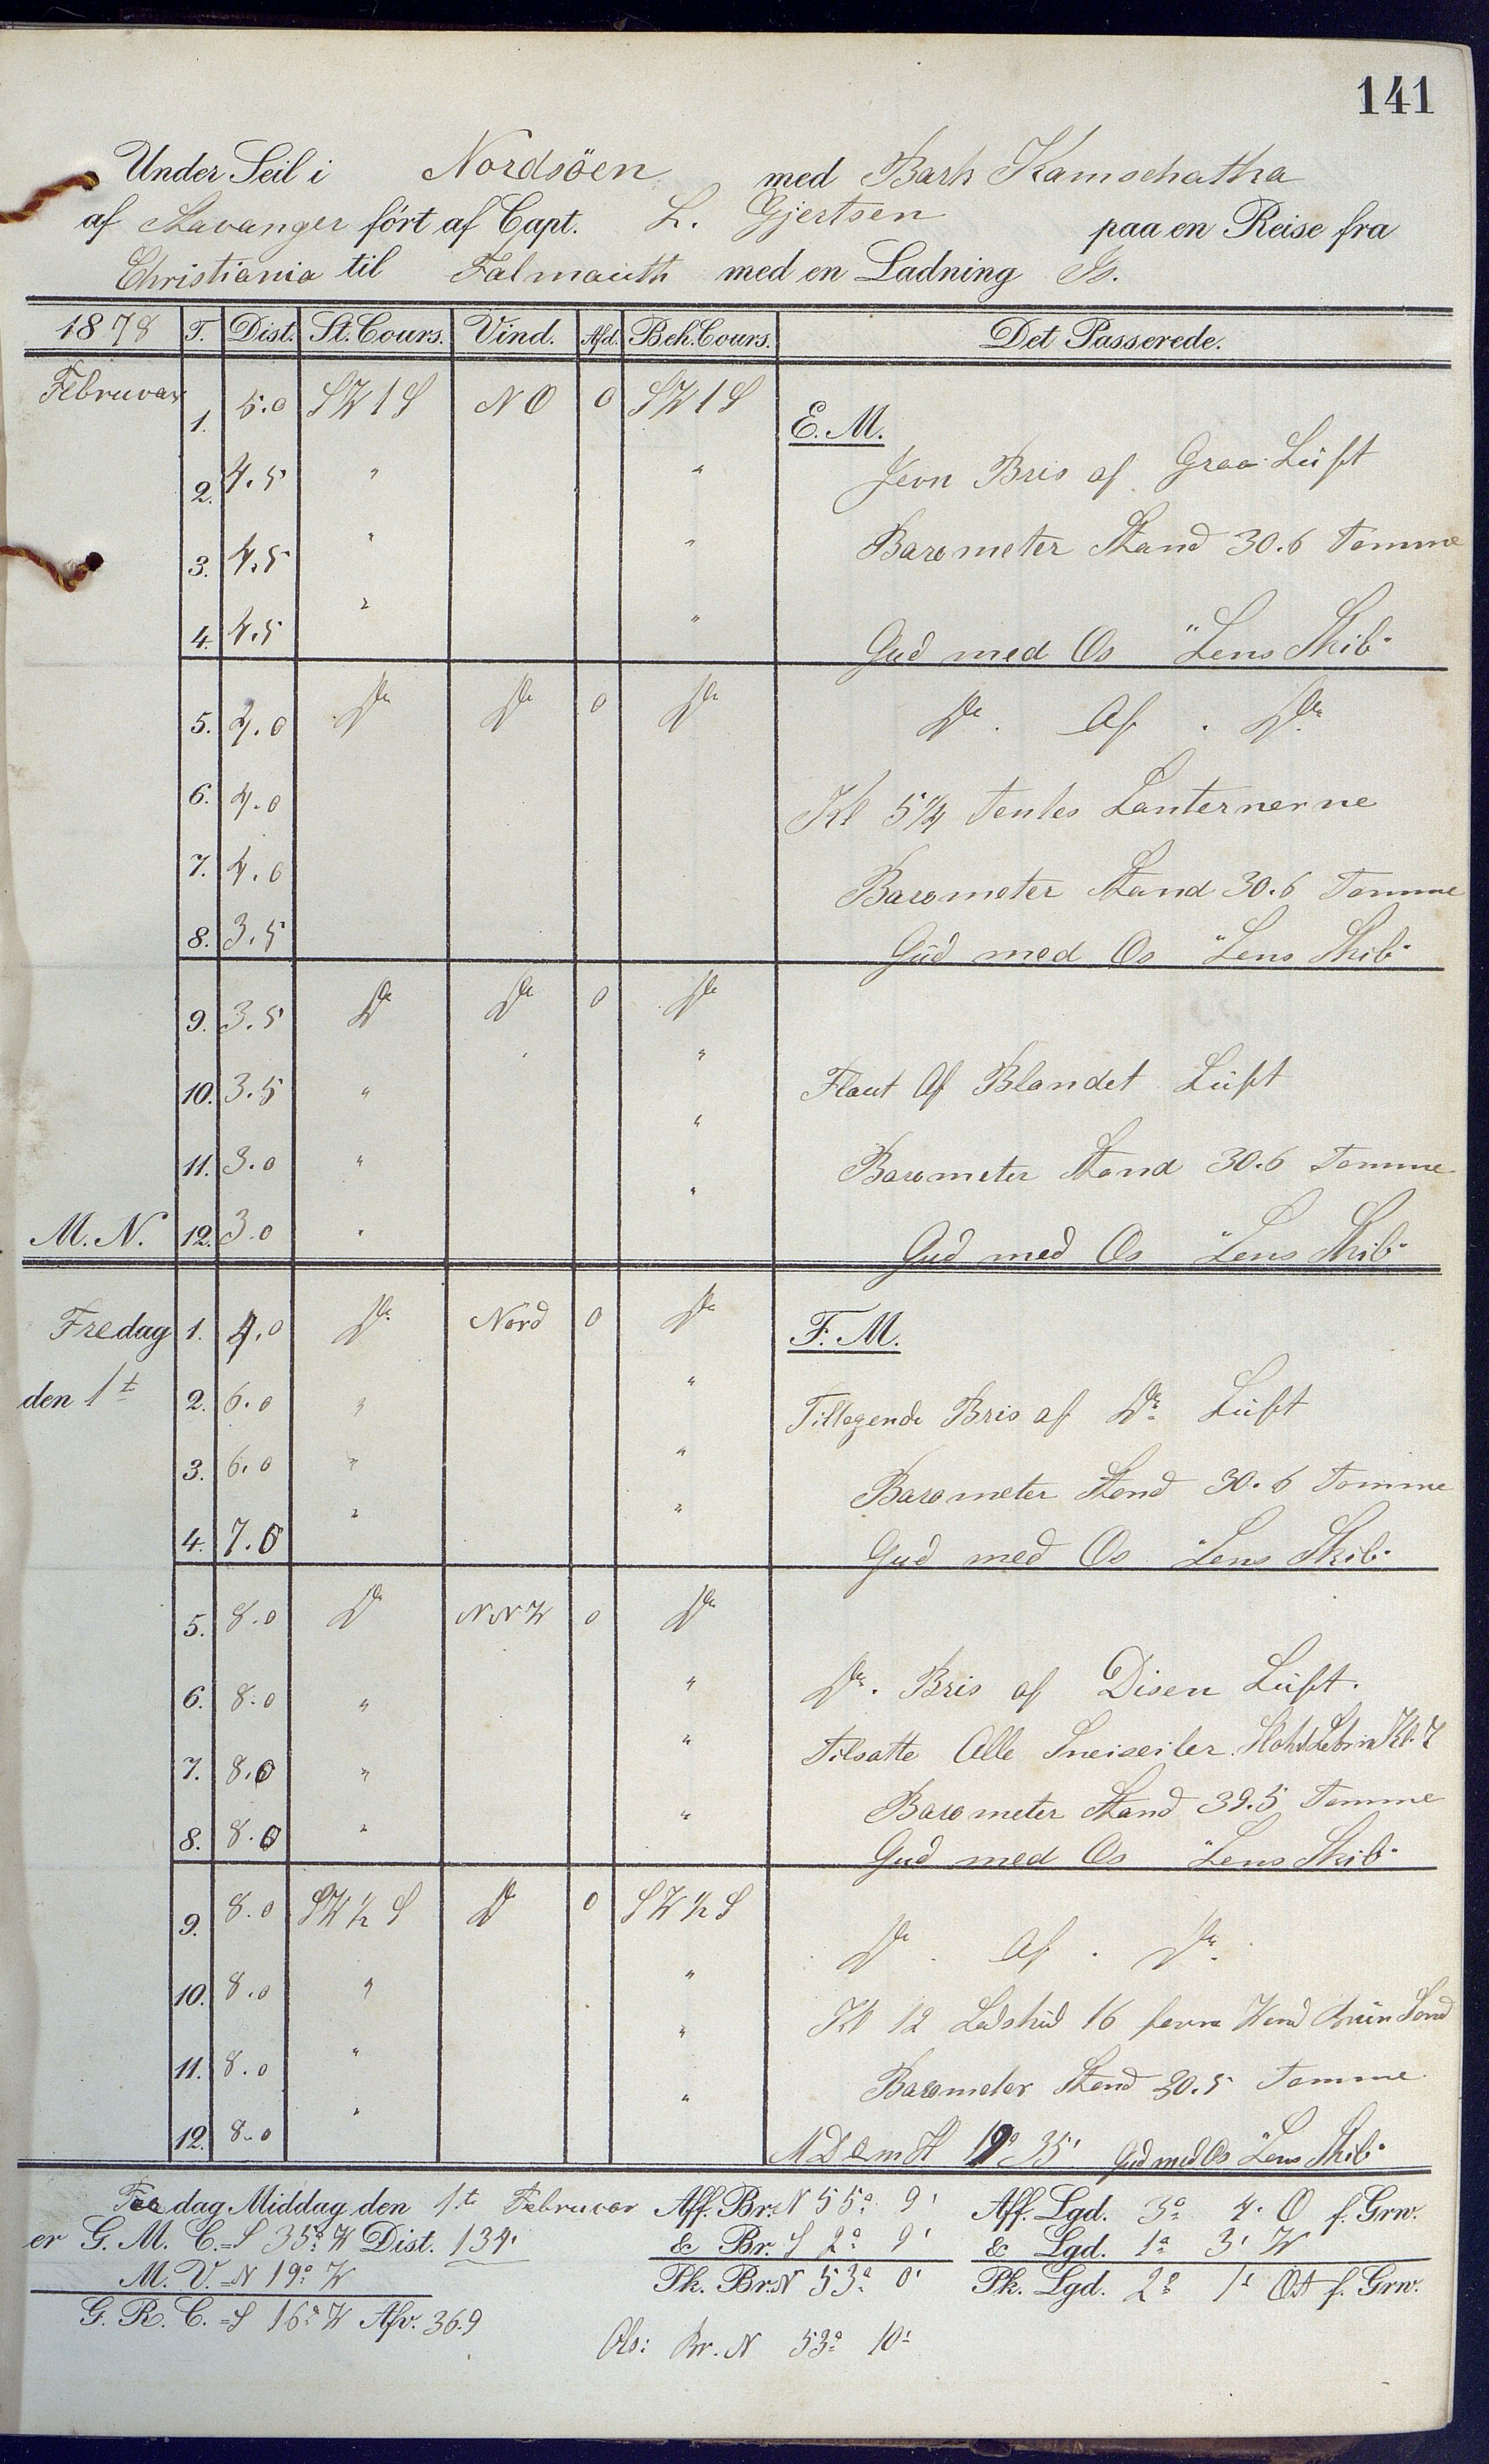 141
Under Seil i Nordsöen med Bark Kamschatka
af Stavanger fört af Capt. L. Gjertsen paa en Reise fra
Christiania til Falmauth med en Ladning Is.
1878 T. Dist. St. Cours. Vind. Afd. Beh. Cours. Det Passerede.
Februvar 1. 5.0 SW 1 S NO 0 SW 1 S E. M.
2. 4.5 " " Jevn Bris af Graa Lüft
3. 4.5 " " Barometer Stand 30.6 Tomme
4. 4.5 " " Gud med Os "Lens Skib"
5. 4.0 Do Do 0 Do Do. Af. Do.
6. 4.0 Kl 5 1/4 tentes Lanternerne
7. 4.0 Barometer Stand 30.6 Tomme
8. 3.5 Gud med Os "Lens Skib"
9. 3.5 Do Do 0 Do
10. 3.5 " " " Flaut Af Blandet Lüft
11. 3.0 " " Barometer Stand 30.6 Tomme
M. N. 12. 3.0 " " Gud med Os "Lens Skib"
Fredag 1. 4.0 Do. Nord 0 Do F. M.
den 1t 2. 6.0 " " Tillagende Bris af Do. Lüft
3. 6.0 " " Barometer Stand 30.6 Tomme
4. 7.0 " " Gud med Os "Lens Skib"
5. 8.0 Do NNW 0 Do
6. 8.0 " " Do. Bris af Disen Lüft.
7. 8.0 " " Tilsatte Alle Kl. 7
Barometer Stand 39.5 Tomme
8. 8.0 " " Gud med Os "Lens Skib"
9. 8.0 SW 1/2 S Do 0 SW 1/2 S
Do. Af. Do.
10. 8.0 " " Kl 12 Lodskud 16 favne Sand
11. 8.0 " " Barometer Stand 30.5 Tomme
12. 8.0 " " 19° 35' Gud med Os "Lens Skib"
Fredag Middag den 1.te Februvar Aff. Br. N 55° 9' Aff. Lgd. 3° 4' O f. Grw.
er G. M. C. = S 35° W Dist. 134' & Br. S 2° 9' & Lgd. 1° 3' W
M. V. = N 19° W Pk. Br. N 53° 0' Pk. Lgd. 2° 1' Ost f. Grw.
G. R. C. = S 16° W Afv. 36.9
Obs: Br. N 53° 10'